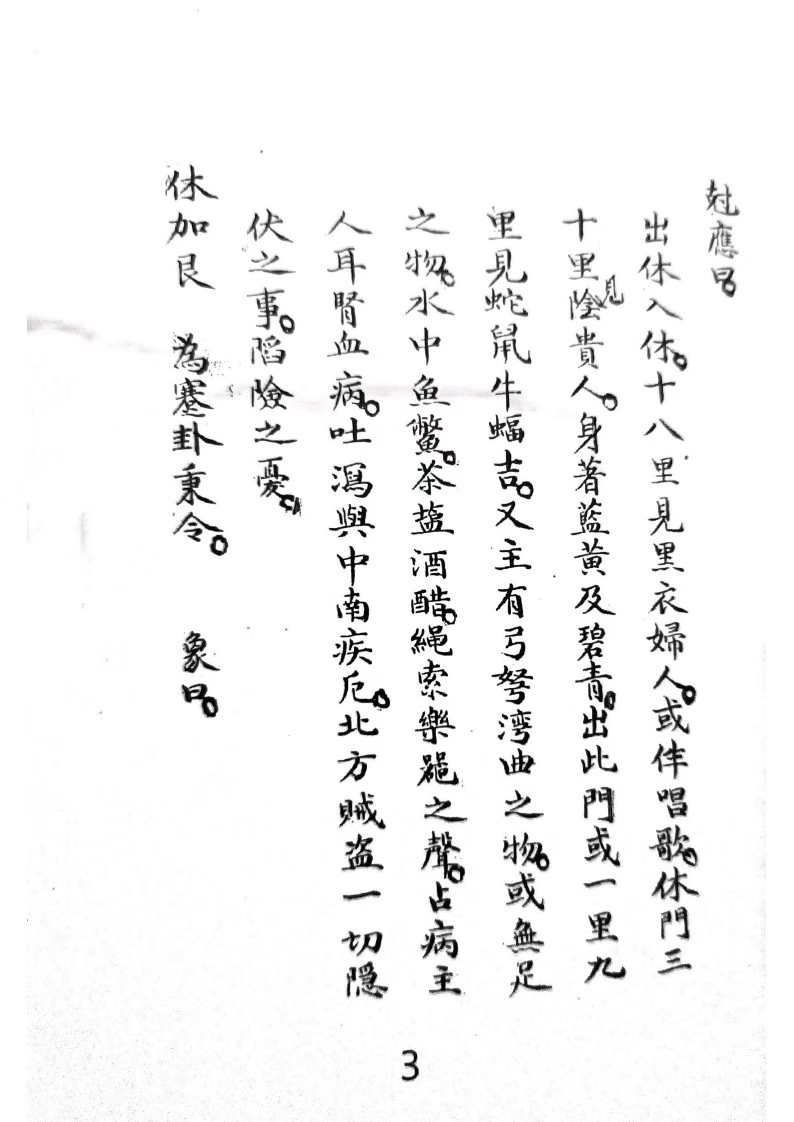 尅應曰。
出休入休。十八里見黑衣婦人。或伴唱歌。休門三
十里見陰貴人。身著藍黃及碧青。出此門或一里九
里見蛇鼠牛蝠吉。又主有弓弩湾曲之物。或無足
之物。水中魚鱉。茶盐酒醋。繩索樂噐之聲。占病主
人耳腎血病。吐瀉與中南疾厄。北方賊盗一切隱
伏之事。陷險之憂。
休加艮 為蹇卦秉令。 象曰。
3